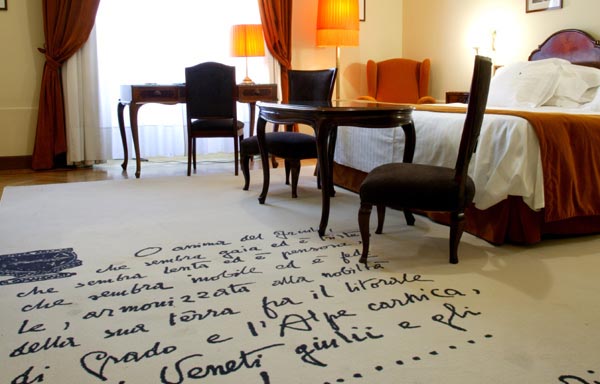 O anima del Friuli
che sembra gaia ed è triste
che sembra lenta ed è pensosa
che sembra mobile ed è
le, armonizzata alla nobiltà
della sua terra fra il litorale
di Grado e l'Alpe carnica,
i Veneti giulii e gli
Di